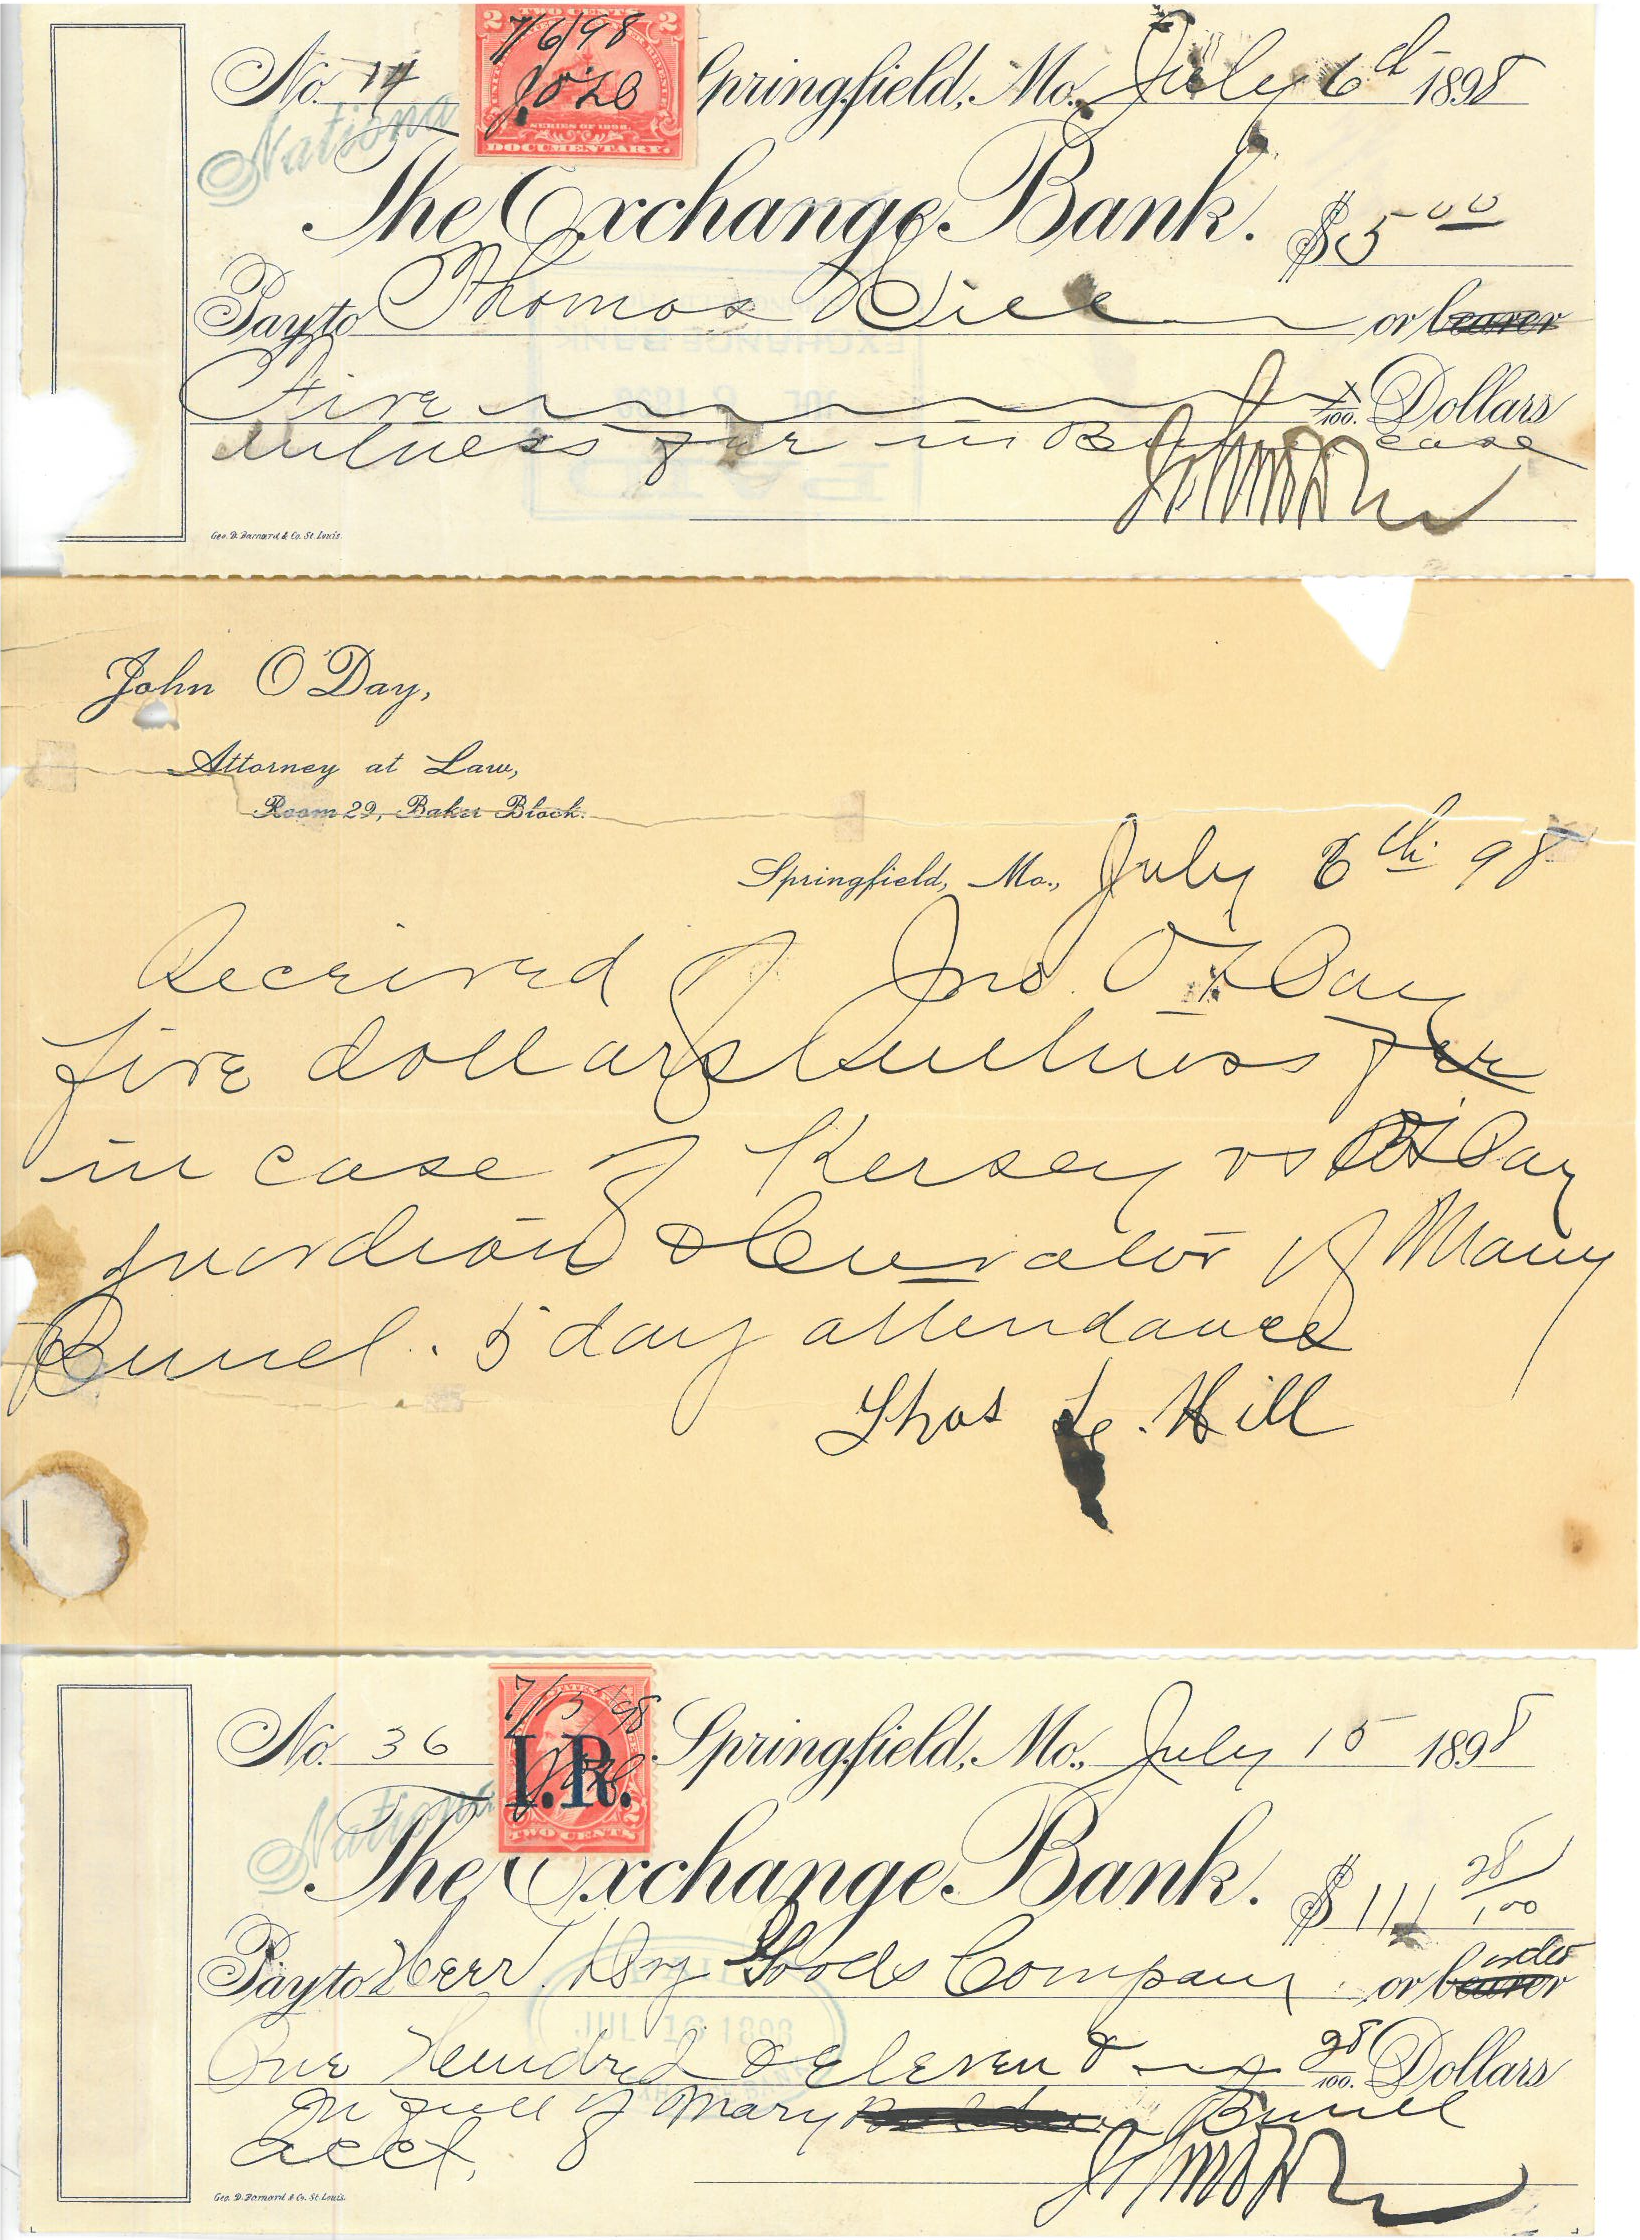 TWO CENTS
2 2
7/6/98
J.O'D
SERIES OF 1898.
DOCUMENTARY.
No. 14 Springfield, Mo., July 6th 1898
National
The Exchange Bank. $5 00
Pay to Thomas Hill or bearer
Five x/100. Dollars
Witness fee in case
Geo. D. Barnard & Co. St. Louis.
EXCHANGE BANK
PAID
John O'Day,
Attorney at Law,
Room 29, Baker Block.
Springfield, Mo., July 6th 98
Received of Jno. O'Day
five dollars Witness fee
in case of Kersey vs O'Day
guardian & Curator of Mary
Bunel. 5 day attendance
Thos L. Hill
7/15/98
I.R.
TWO CENTS
No. 36 Springfield, Mo., July 15 1898
National
The Exchange Bank. $111 28/100
Pay to Herr Dry Goods Company or bearer order
One Hundred & Eleven & 28/100. Dollars
JUL 16 1898
In full of Mary Bunel
acct.
Geo. D. Barnard & Co. St. Louis.